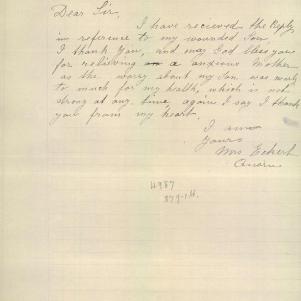 Dear Sir,
I have recieved the Reply
in reference to my wounded Son
I thank You, and may God bless you
for relieving a anxious Mother
as the worry about my Son was much
to much for my health, which is not
strong at any time, again I say I thank
you from my heart.
I am
Yours
Mrs Eckert
4987